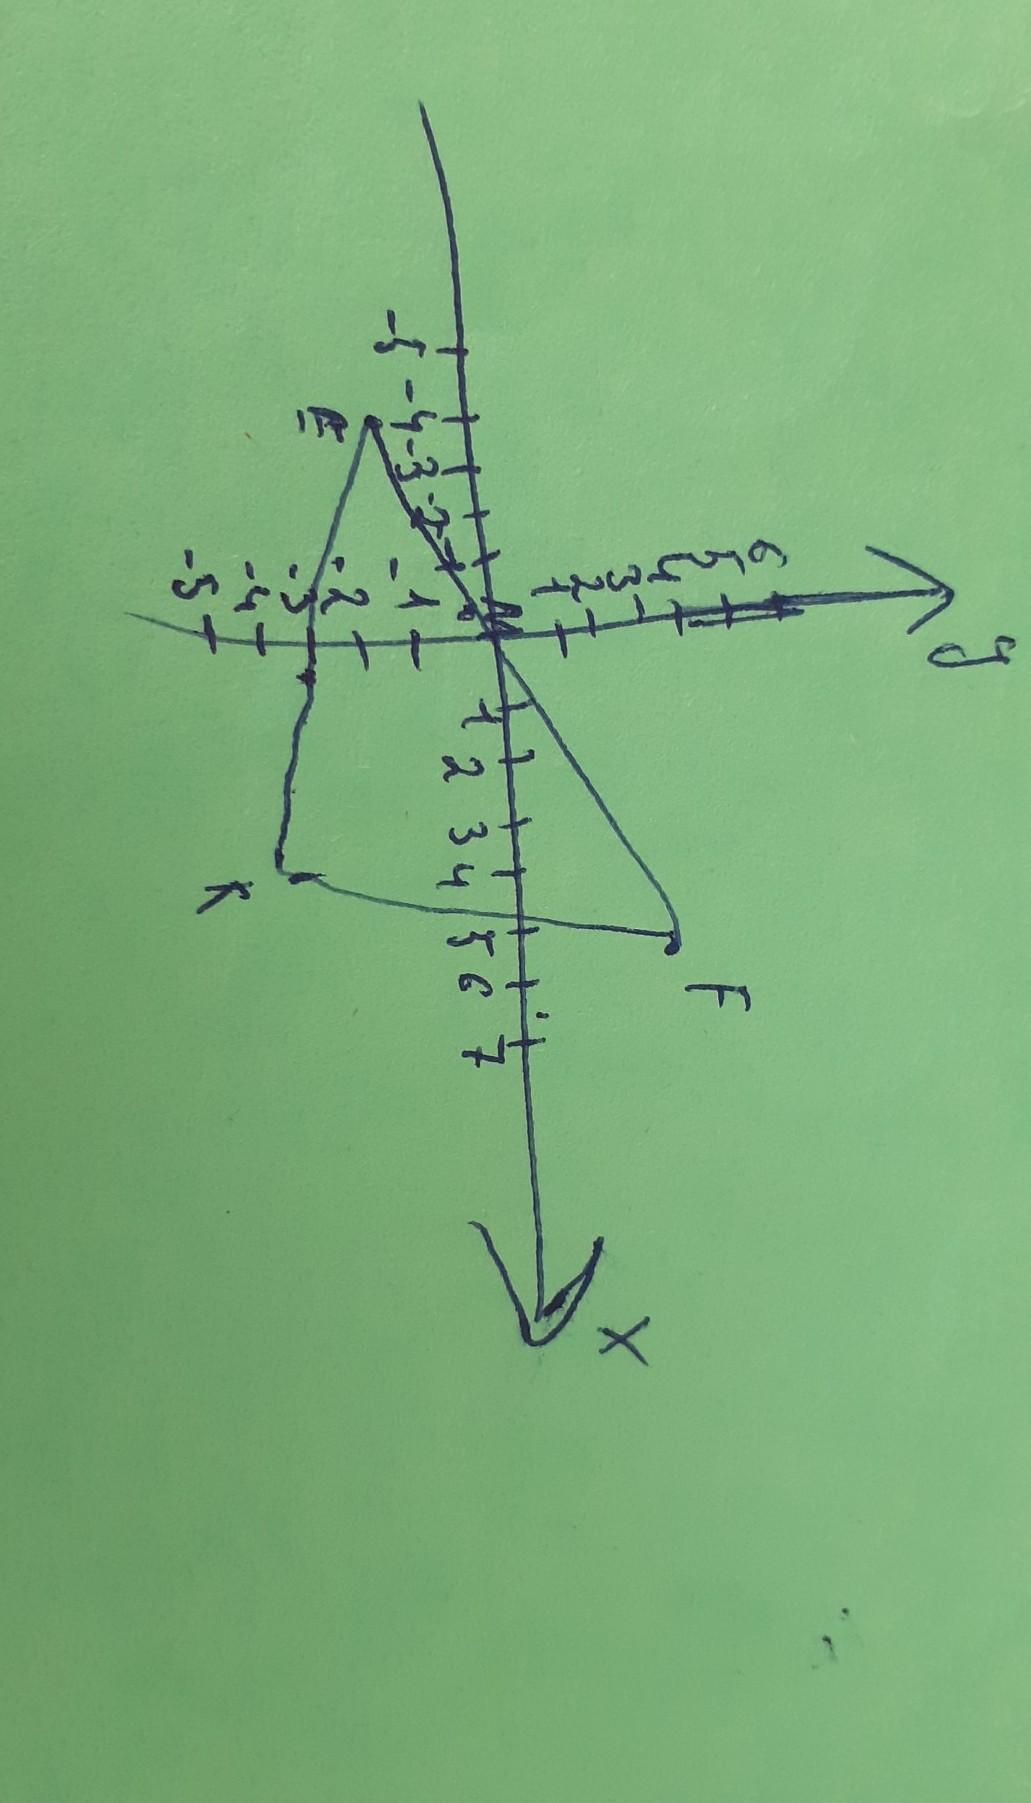 y
6
5
4
3
2
1
-5 -4 -3 -2 -1 1 2 3 4 5 6 7
X
-1
-2
-3
-4
-5
E
M
F
K